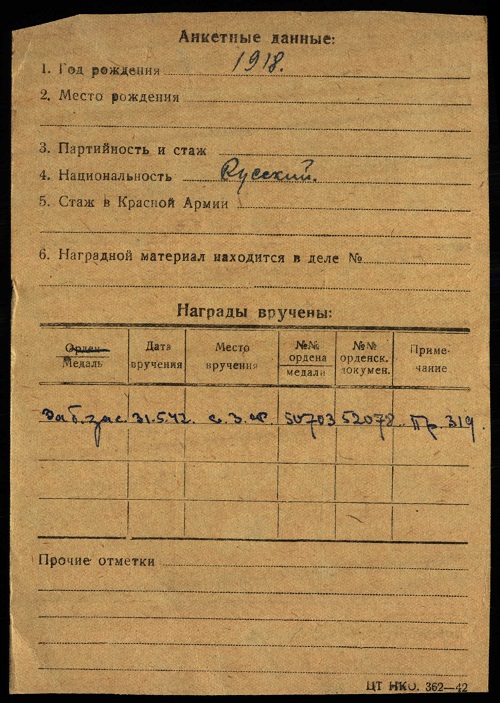 Анкетные данные:
1. Год рождения 1918.
2. Место рождения
3. Партийность и стаж
4. Национальность Русский.
5. Стаж в Красной Армии
6. Наградной материал находится в деле №
Награды вручены:
Орден Медаль | Дата вручения | Место вручения | №№ ордена медали | №№ орденск. докумен. | Приме- чание
За б. зас. 31.5.42 с. З. Ф. 50703 52078 Пр. 319
Прочие отметки
ЦТ НКО. 362—42